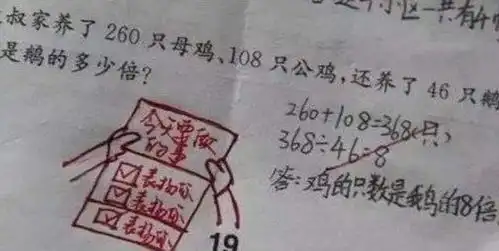 是个小区一共有4个
叔家养了260只母鸡、108只公鸡，还养了46只鹅
是鹅的多少倍？
260+108=368(只)
368÷46=8
答：鸡的只数是鹅的8倍
今天要做
的事
表扬你
表扬你
表扬你
19